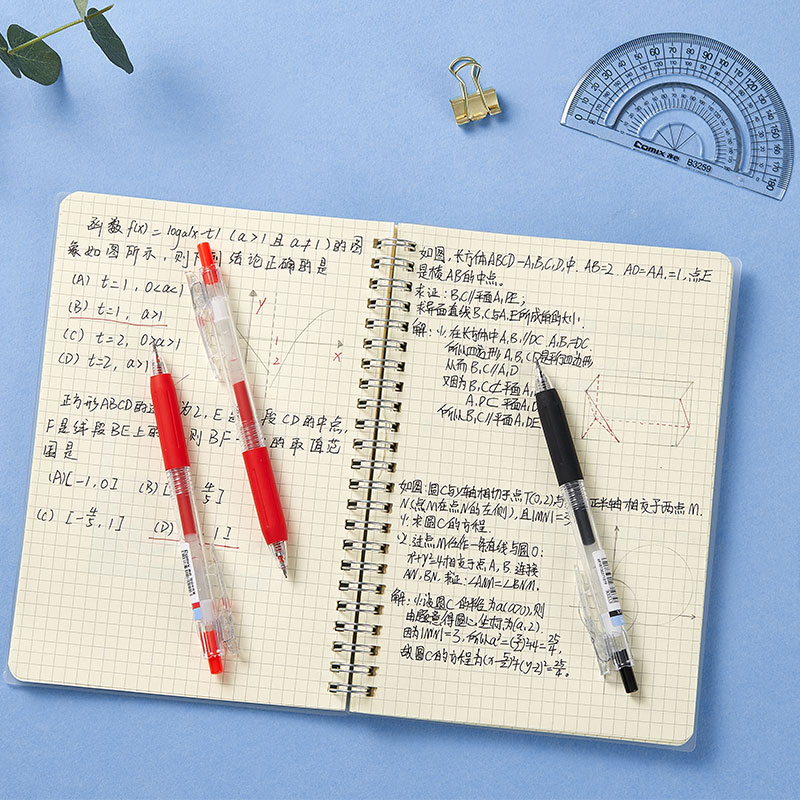 函数 f(x) = loga|x-t| (a>1 且 a≠1) 的图
象如图所示, 则 列 结论正确的是
(A) t=1, 0<a<1
(B) t=1, a>1
(C) t=2, 0>a>1
(D) t=2, a>1
y
1
2
x
正方形ABCD的 为2, E 段 CD的中点,
F是线段 BE上的 则 BF· 的取值范
围是
(A)[-1,0] (B)[ 4/5]
(C) [-4/5, 1] (D) 1]
如图, 长方体ABCD-A₁B₁C₁D₁中. AB=2. AD=AA₁=1, 点E
是棱AB的中点。
求证: B₁C//平面A₁DE;
求异面直线B₁C与A₁E所成角的大小.
解: 在长方体中A₁B₁//DC A₁B₁=DC
所以四边形A₁B₁CD是平行四边形
从而B₁C//A₁D
又因为B₁C⊄平面A₁
A₁D⊂ 平面A₁D
所以B₁C//平面A₁DE
如图: 圆C与y轴相切于点T(0,2)与 正半轴相交于两点M.
N(点M在点N的左侧), 且|MN|=3
求圆C的方程.
过点M任作一条直线与圆O:
x²+y²=4相交于点A, B 连接
AN, BN. 求证: ∠ANM=∠BNM.
解: 设圆C的半径为a(a>0), 则
由题意得圆心坐标为(a,2).
因为|MN|=3, 所以a²=(3/2)²+4=25/4,
故圆C的方程为(x-5/2)²+(y-2)²=25/4。
Comix 齐心 B3259